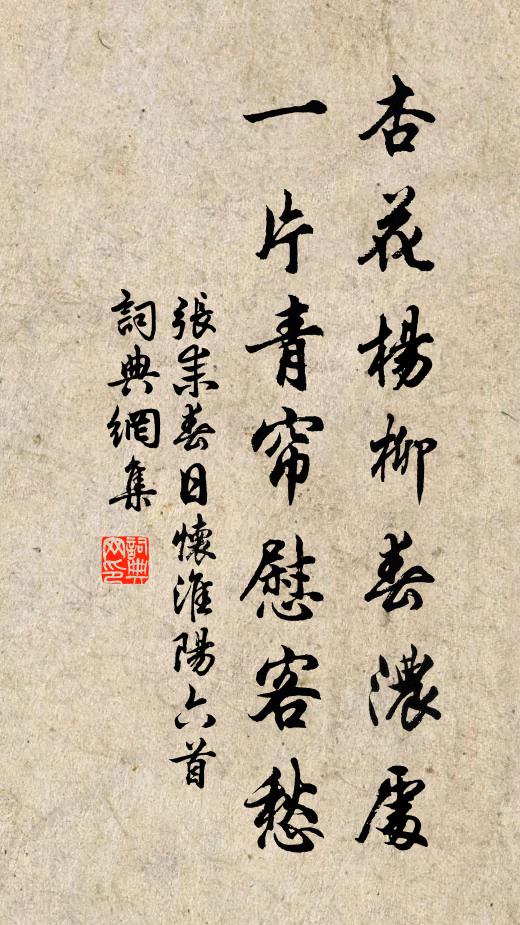 杏花楊柳春濃處
一片青帘慰客愁
張耒春日懷淮陽六首
詞典網集
詞典网印